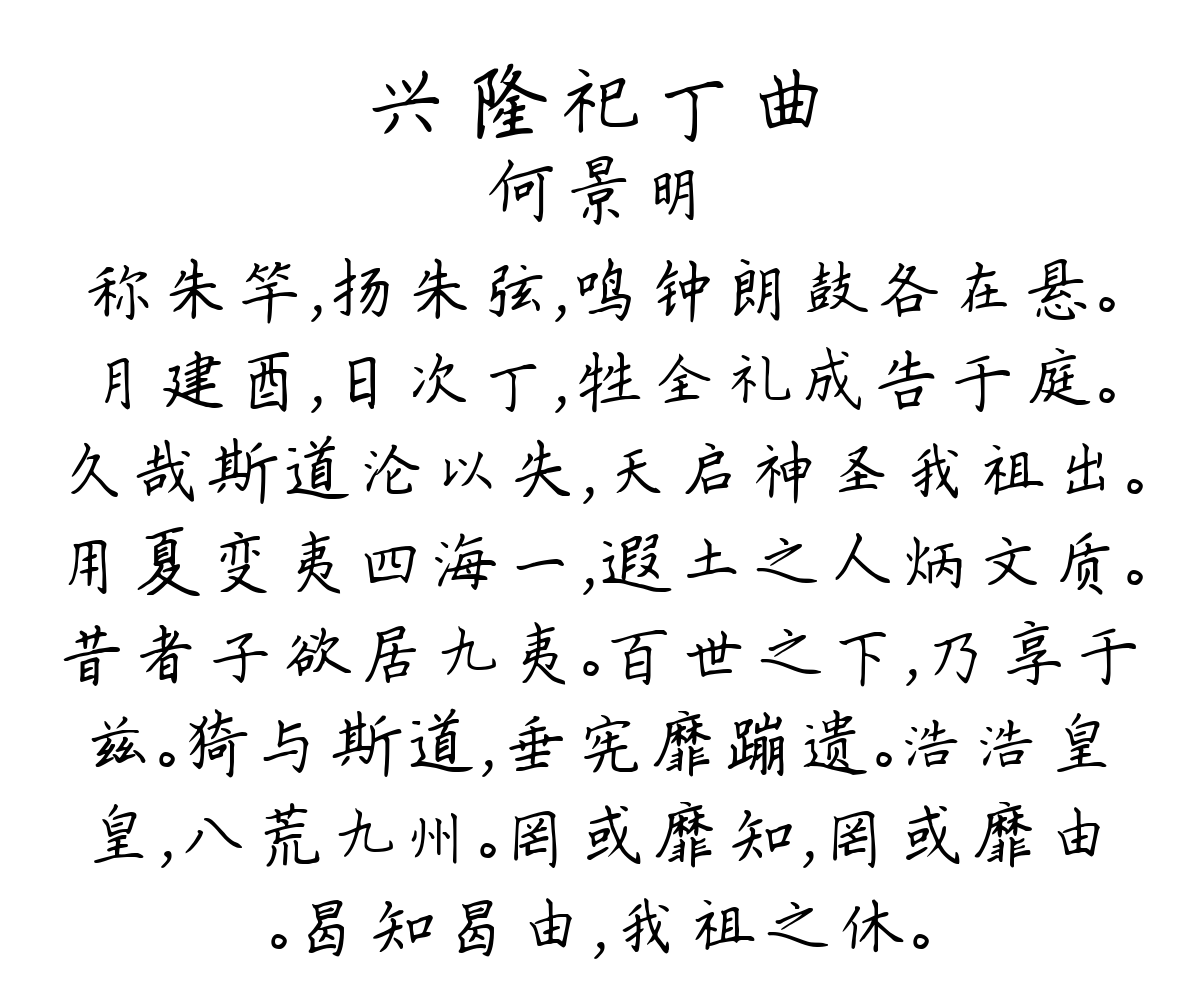 兴隆祀丁曲
何景明
称朱竿,扬朱弦,鸣钟朗鼓各在悬。
月建酉,日次丁,牲全礼成告于庭。
久哉斯道沦以失,天启神圣我祖出。
用夏变夷四海一,遐土之人炳文质。
昔者子欲居九夷。百世之下,乃享于
兹。猗与斯道,垂宪靡蹦遗。浩浩皇
皇,八荒九州。罔或靡知,罔或靡由
。曷知曷由,我祖之休。